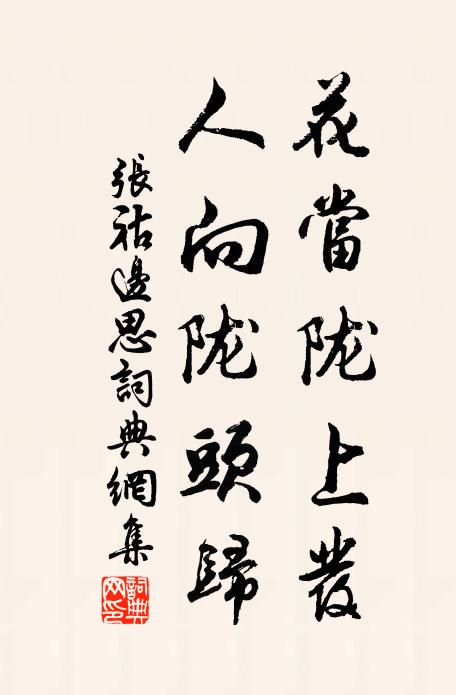 花當陇上發
人向陇頭歸
張祜邊思詞典網集
詞典網印